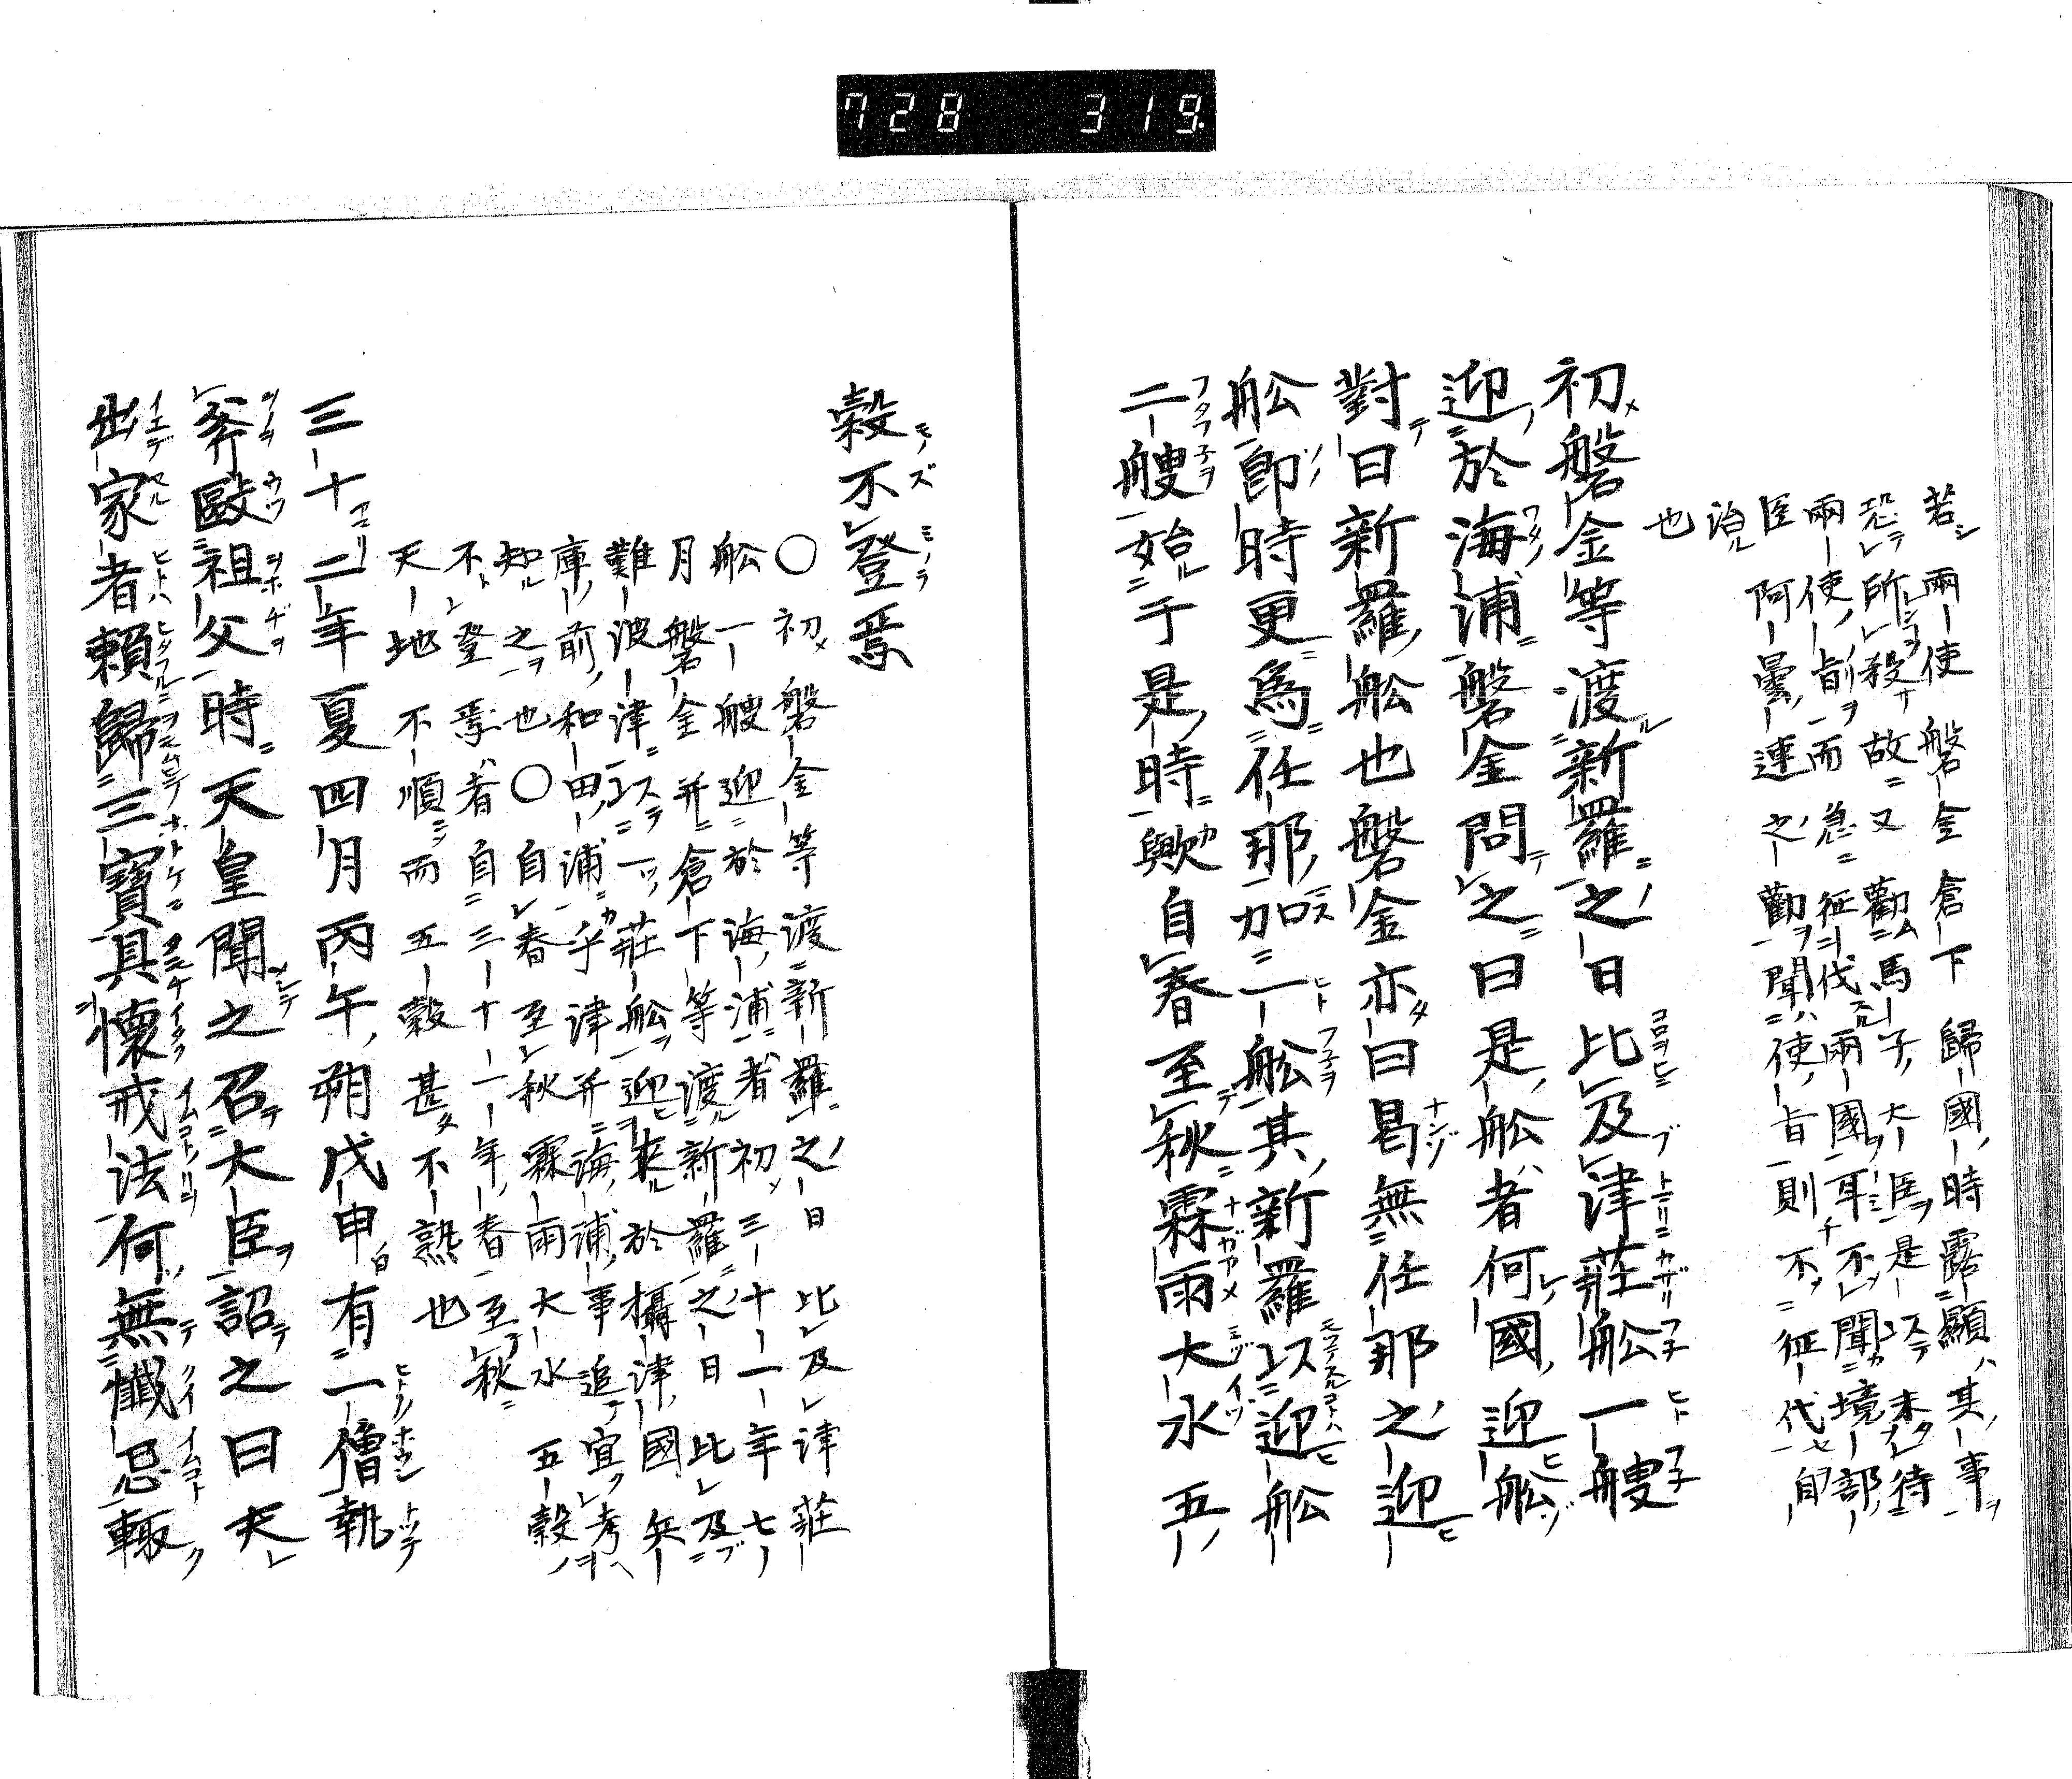 728 319
若兩使磐金倉下歸國時露顯其事
恐所殺故又勸馬子大臣是以未待
兩使旨而急征伐兩國耳不聞境部
臣阿曇連之勸聞使旨則不征代自
治
也
初磐金等渡新羅之日比及津莊舩一艘
迎於海浦磐金問之曰是舩者何國迎舩
對曰新羅舩也磐金亦曰曷無任那之迎
舩卽時更爲任那加一舩其新羅以迎舩
二艘始于是時歟自春至秋霖雨大水五
穀不登焉
〇初磐金等渡新羅之日比及津莊
舩一艘迎於海浦者初三十一年七
月磐金并倉下等渡新羅之日比及
難波津以一莊舩迎來於攝津國矢
庫前和田浦乎津并海浦事追宜考
知之也〇自春至秋霖雨大水五穀
不登焉者自三十一年春至秋
天地不順而五穀甚不熟也
三十二年夏四月丙午朔戊申有一僧執
斧毆祖父時天皇聞之召大臣詔之曰夫
出家者頼歸三寶具懷戒法何無懺忌輙